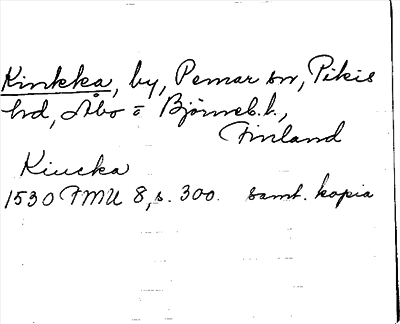 Kinkka, by, Pemar sn, Pikis
hd, Åbo o Björneb.l.,
Finland
Kiucka
1530 FMU 8, s. 300. samt. kopia